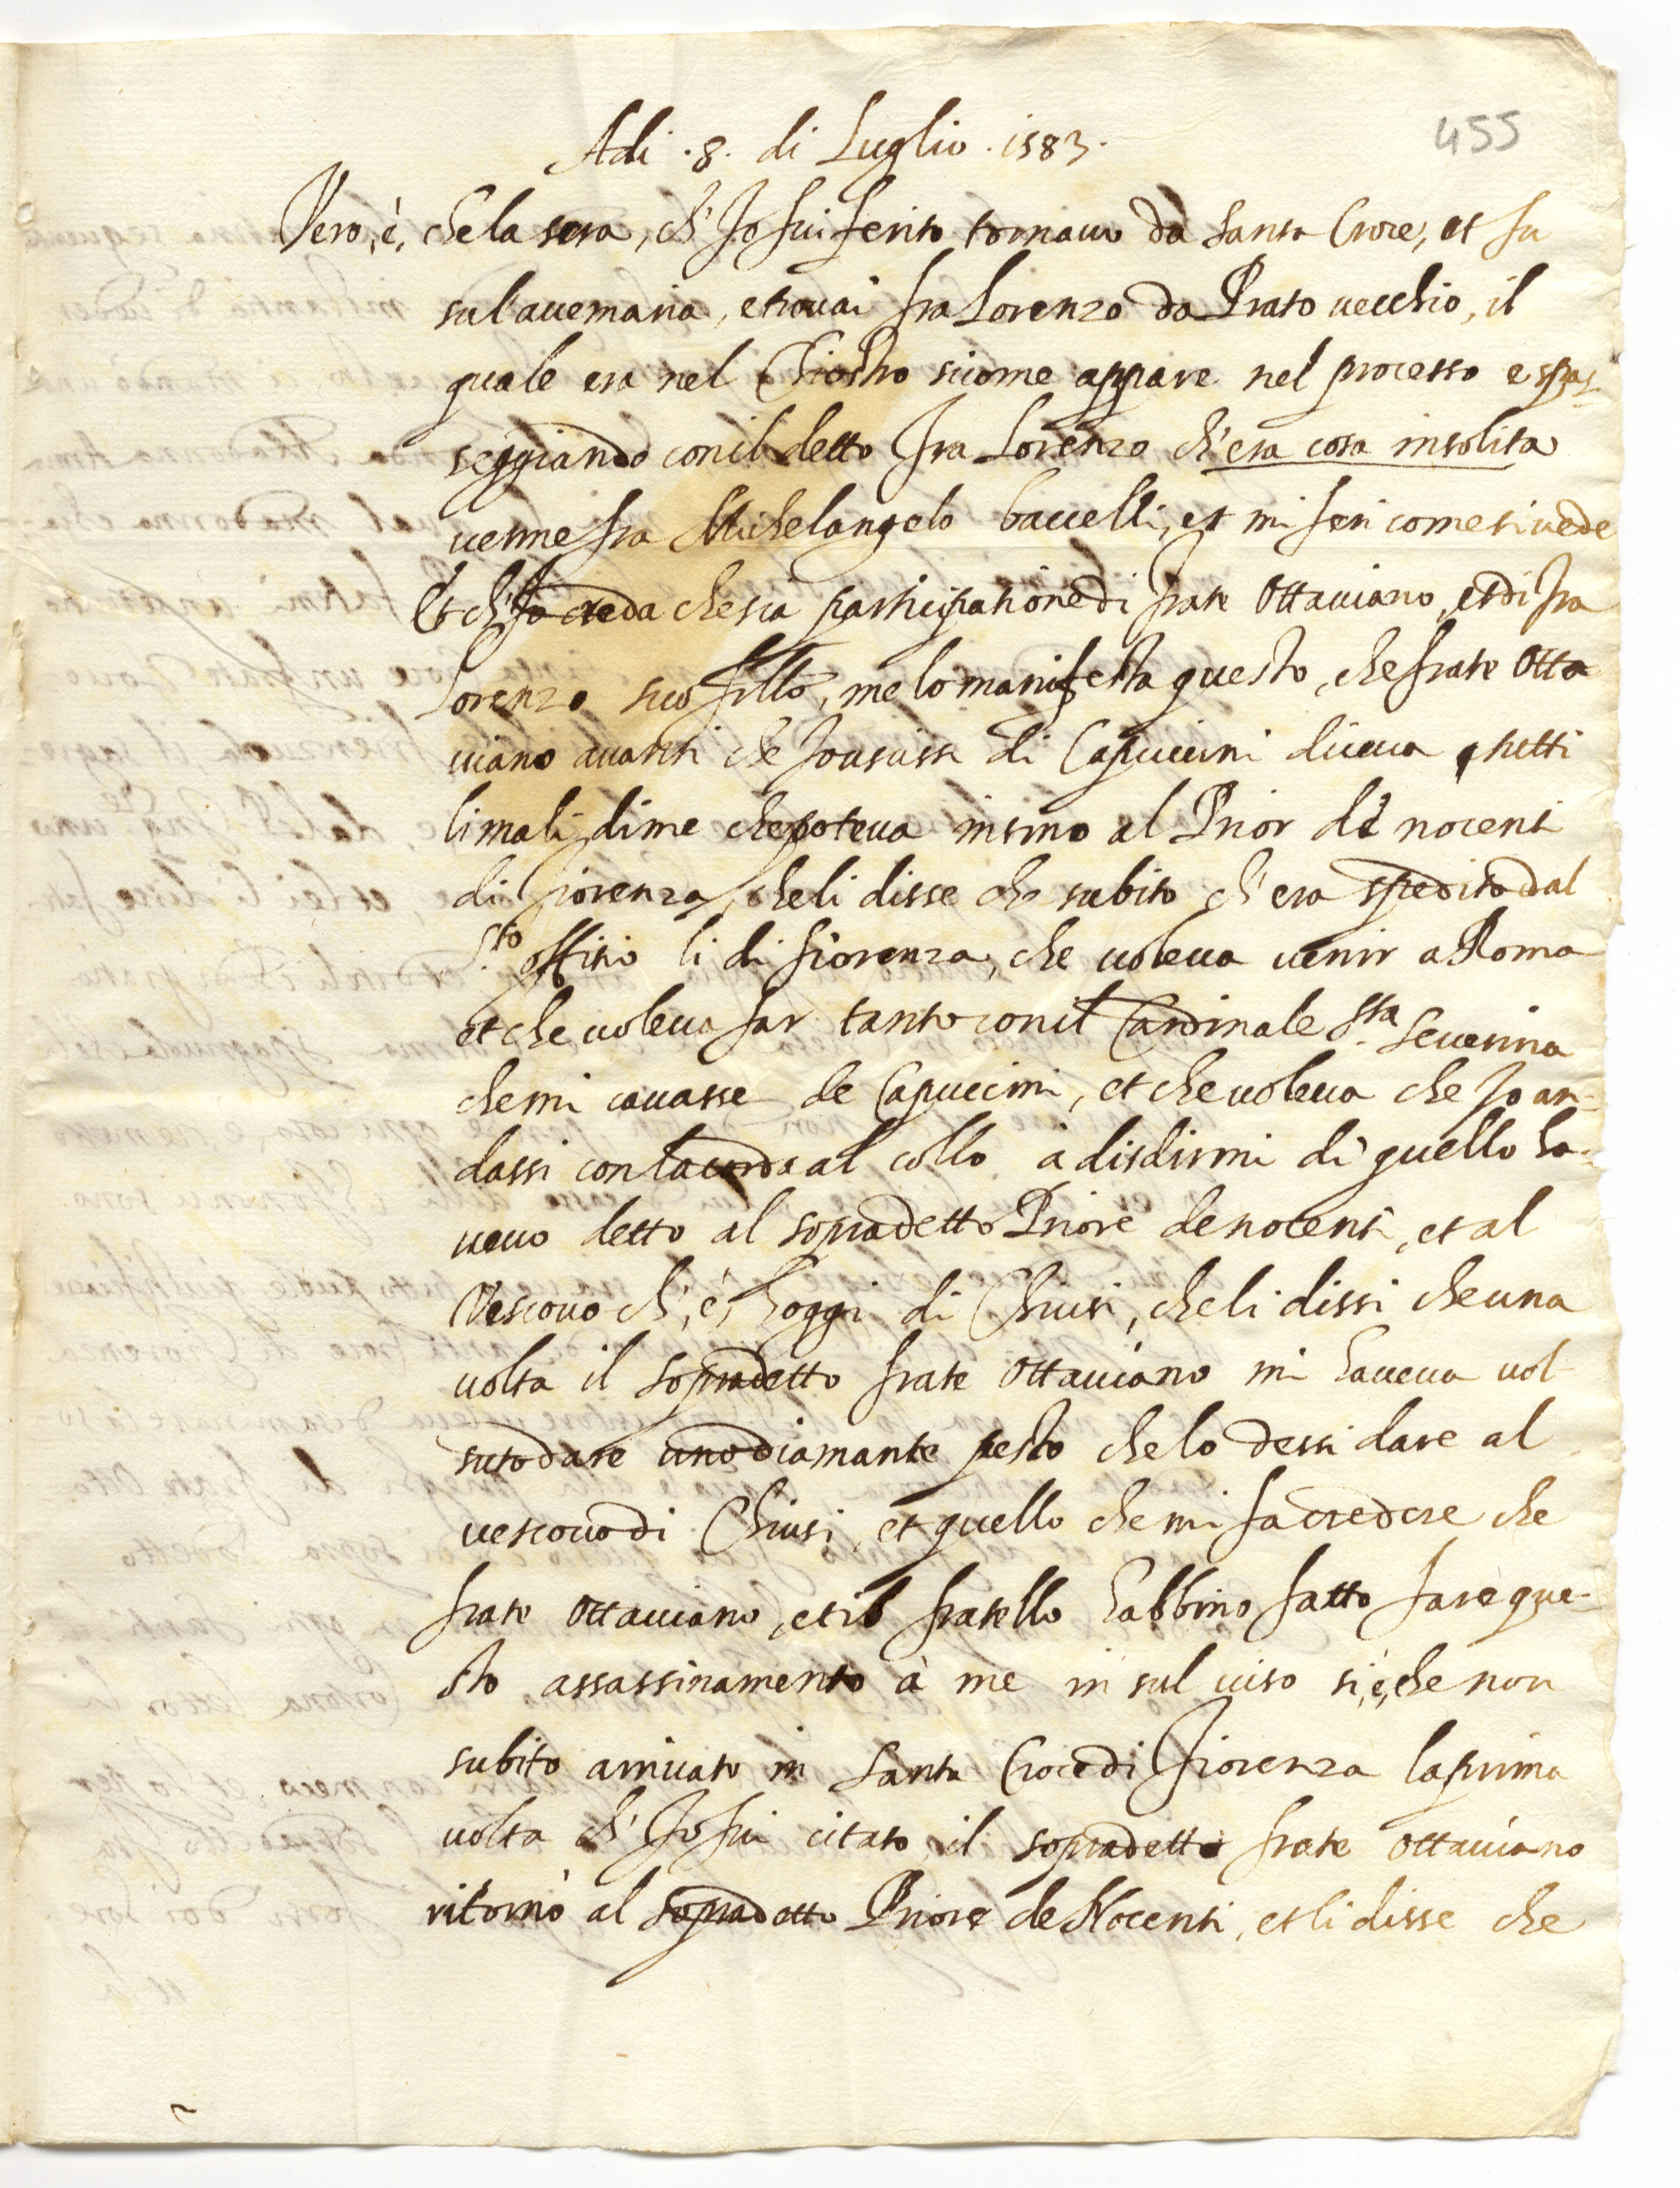 455
Adi .8. di Luglio .1583.
Vero, è, che la sera, ch' Io fui ferito tornauo da Santa Croce, et fu
sul'auemaria, e trouai fra Lorenzo da Prato uecchio, il
quale era nel Chiostro sicome appare nel processo e spas-
seggiando con il detto fra Lorenzo ch'era cosa insolita
uenne fra Michelangelo baccelli, et mi ferì come si uede
Et ch'Io creda che sia participatione di frate Ottauiano, et di fra
Lorenzo suo fillo, me lo manifesta questo, che frate Otta
uiano auanti che Io uscissi di Capuccini diceua tutti
li mali di me che poteua insino al Prior de nocenti
di fiorenza, che li disse che subito ch'era spedito dal
S.to offitio li di fiorenza, che uoleua uenir a Roma
et che uoleua far tanto con il Cardinale S.ta Seuerina
che mi cauasse de Capuccini, et che uoleua che Io an-
dassi con la corda al collo à disdirmi di quello ha-
ueuo detto al sopradetto Priore de nocenti, et al
Vescouo ch', è, hoggi di Chiusi, che li dissi che una
uolta il sopradetto frate Ottauiano mi haueua uol
suto dare uno diamante pesto che lo dessi dare al
uescouo di Chiusi, et quello che mi fa credere che
frate Ottauiano, et il fratello habbino fatto fare que-
sto assassinamento à me in sul uiso si, è, che non
subito arriuato in Santa Croce di Fiorenza la prima
uolta ch' Io fui citato il sopradetto frate Ottauiano
ritornò al sopradetto Priore de Nocenti, et li disse che